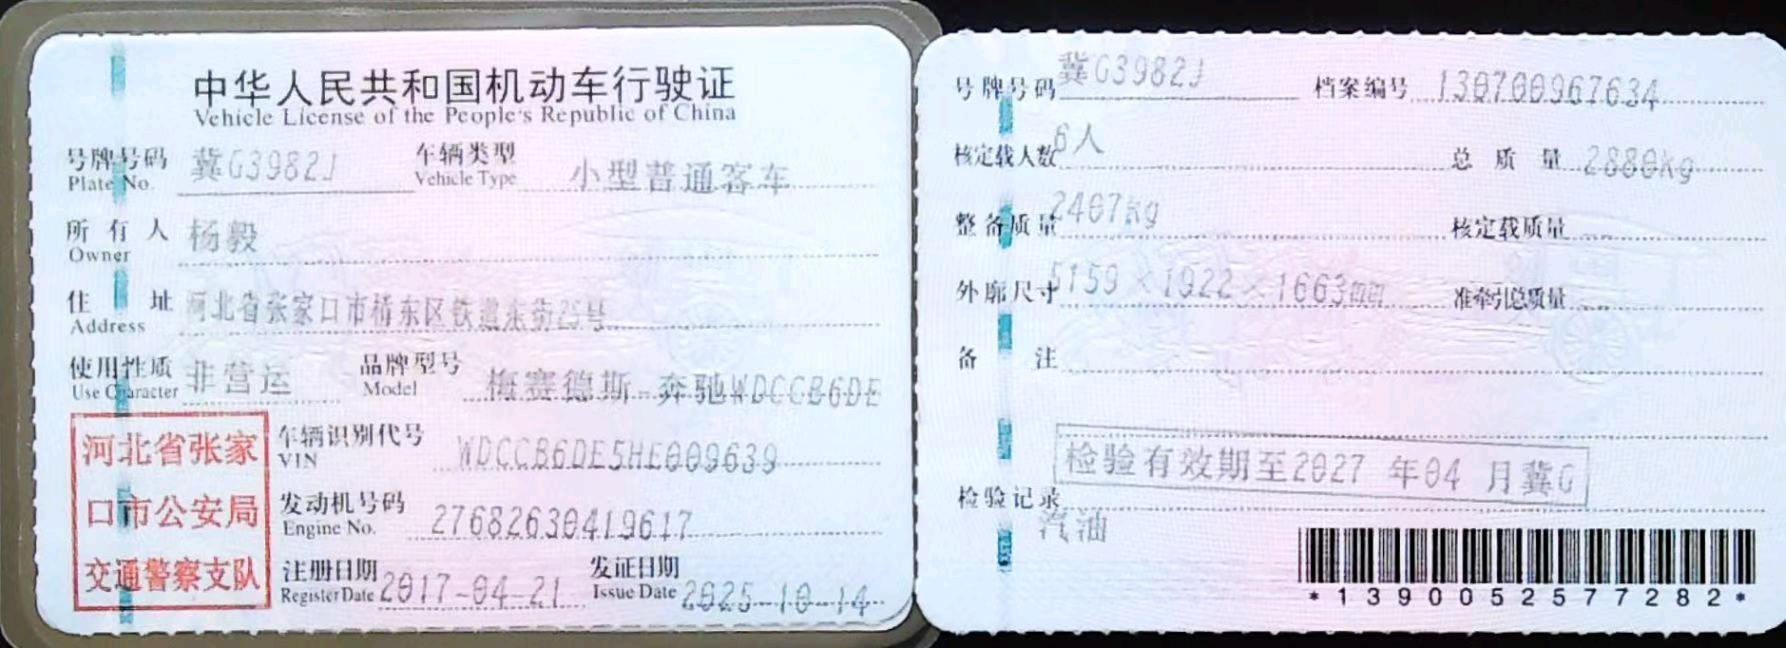 中华人民共和国机动车行驶证
Vehicle License of the People's Republic of China
号牌号码 冀G3982J 车辆类型 小型普通客车
Plate No. Vehicle Type
所有人 杨毅
Owner
住址 河北省张家口市桥东区铁道东街25号
Address
使用性质 非营运 品牌型号 梅赛德斯-奔驰WDCCB6DE
Use Character Model
河北省张家
口市公安局
交通警察支队
车辆识别代号 WDCCB6DE5HE009639
VIN
发动机号码 27682630419617
Engine No.
注册日期 2017-04-21 发证日期 2025-10-14
Register Date Issue Date
号牌号码 冀G3982J 档案编号 130700967634
核定载人数 6人 总质量 2880kg
整备质量 2407kg 核定载质量 --
外廓尺寸 5159×1922×1663mm 准牵引总质量 --
备注
检验有效期至2027年04月冀G
检验记录
汽油
*1390052577282*